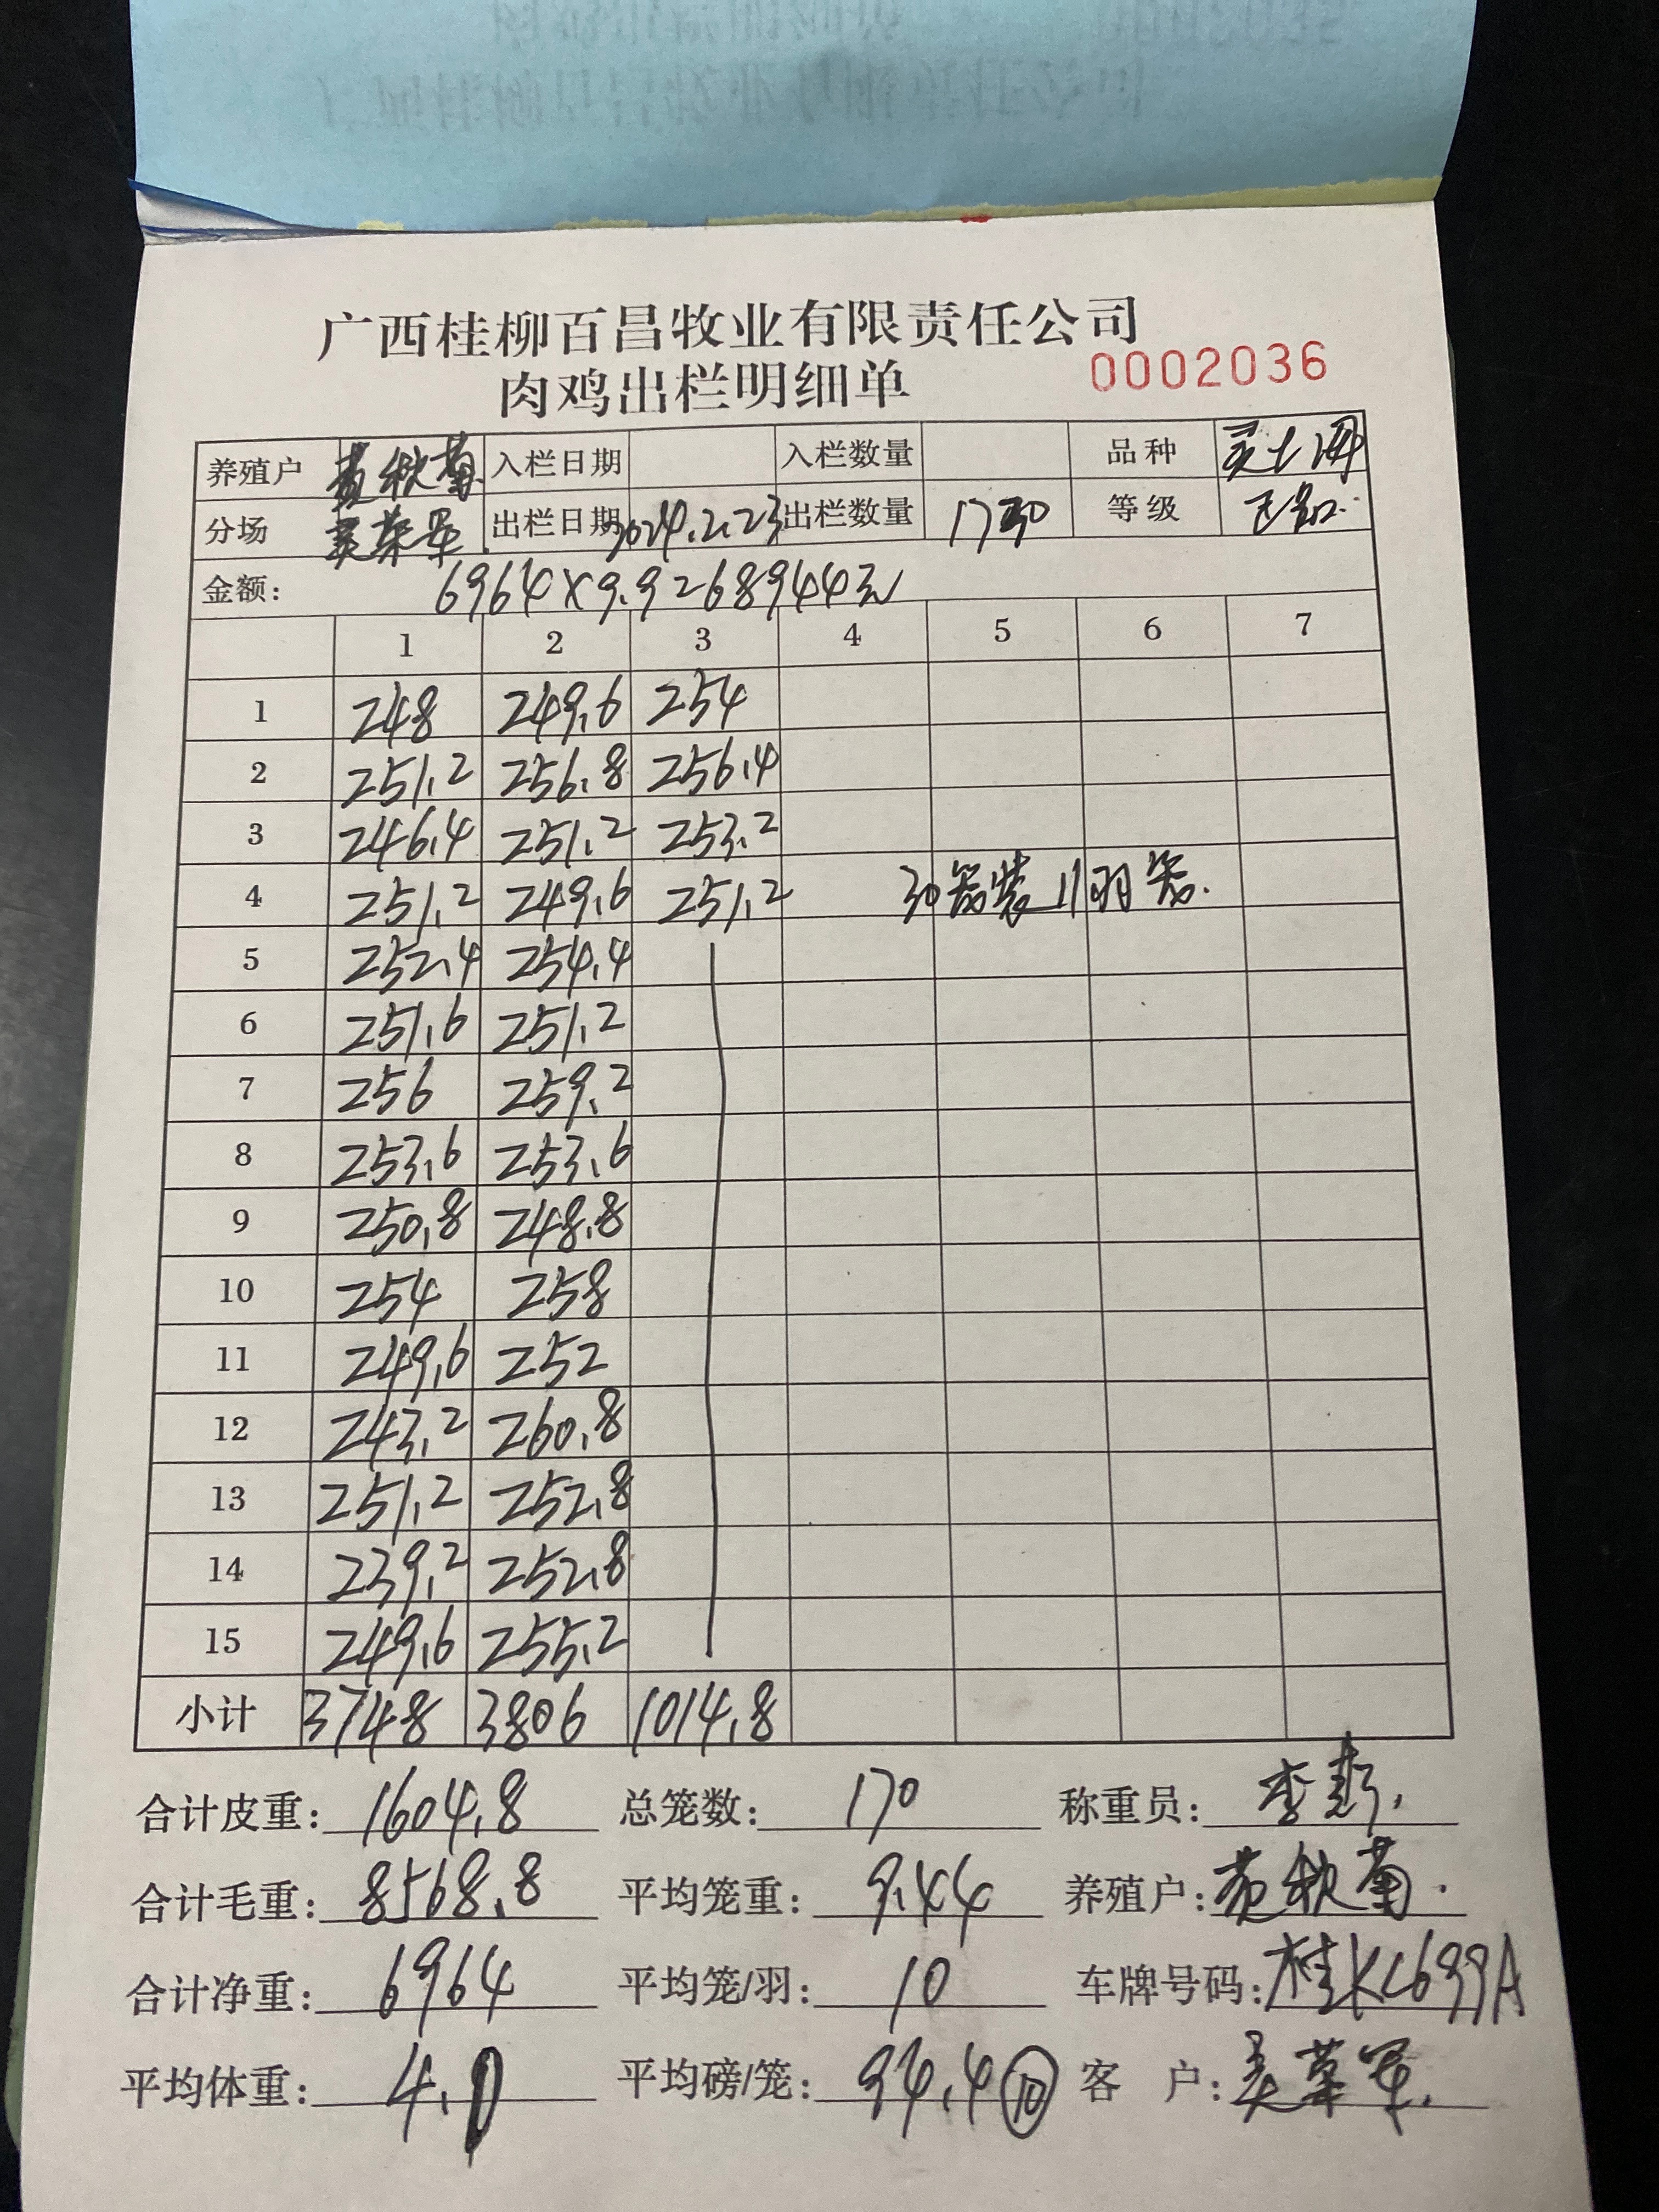 广西桂柳百昌牧业有限责任公司
肉鸡出栏明细单 0002036
养殖户 秋菊 入栏日期 入栏数量 品种
分场 出栏日期 2024.2.23 出栏数量 1730 等级
金额: 6964×9.9=68944元
1 2 3 4 5 6 7
1 248 249.6 254
2 251.2 256.8 256.4
3 246.4 251.2 253.2
4 251.2 249.6 251.2 30笼装11羽笼.
5 252.4 254.4
6 251.6 251.2
7 256 259.2
8 253.6 253.6
9 250.8 248.8
10 254 258
11 249.6 252
12 243.2 260.8
13 251.2 252.8
14 239.2 252.8
15 249.6 255.2
小计 3748 3806 1014.8
合计皮重: 1604.8 总笼数: 170 称重员: 李
合计毛重: 8568.8 平均笼重: 9.44 养殖户: 秋菊
合计净重: 6964 平均笼/羽: 10 车牌号码: 桂KC699A
平均体重: 4.0 平均磅/笼: 94.4 10 客 户: